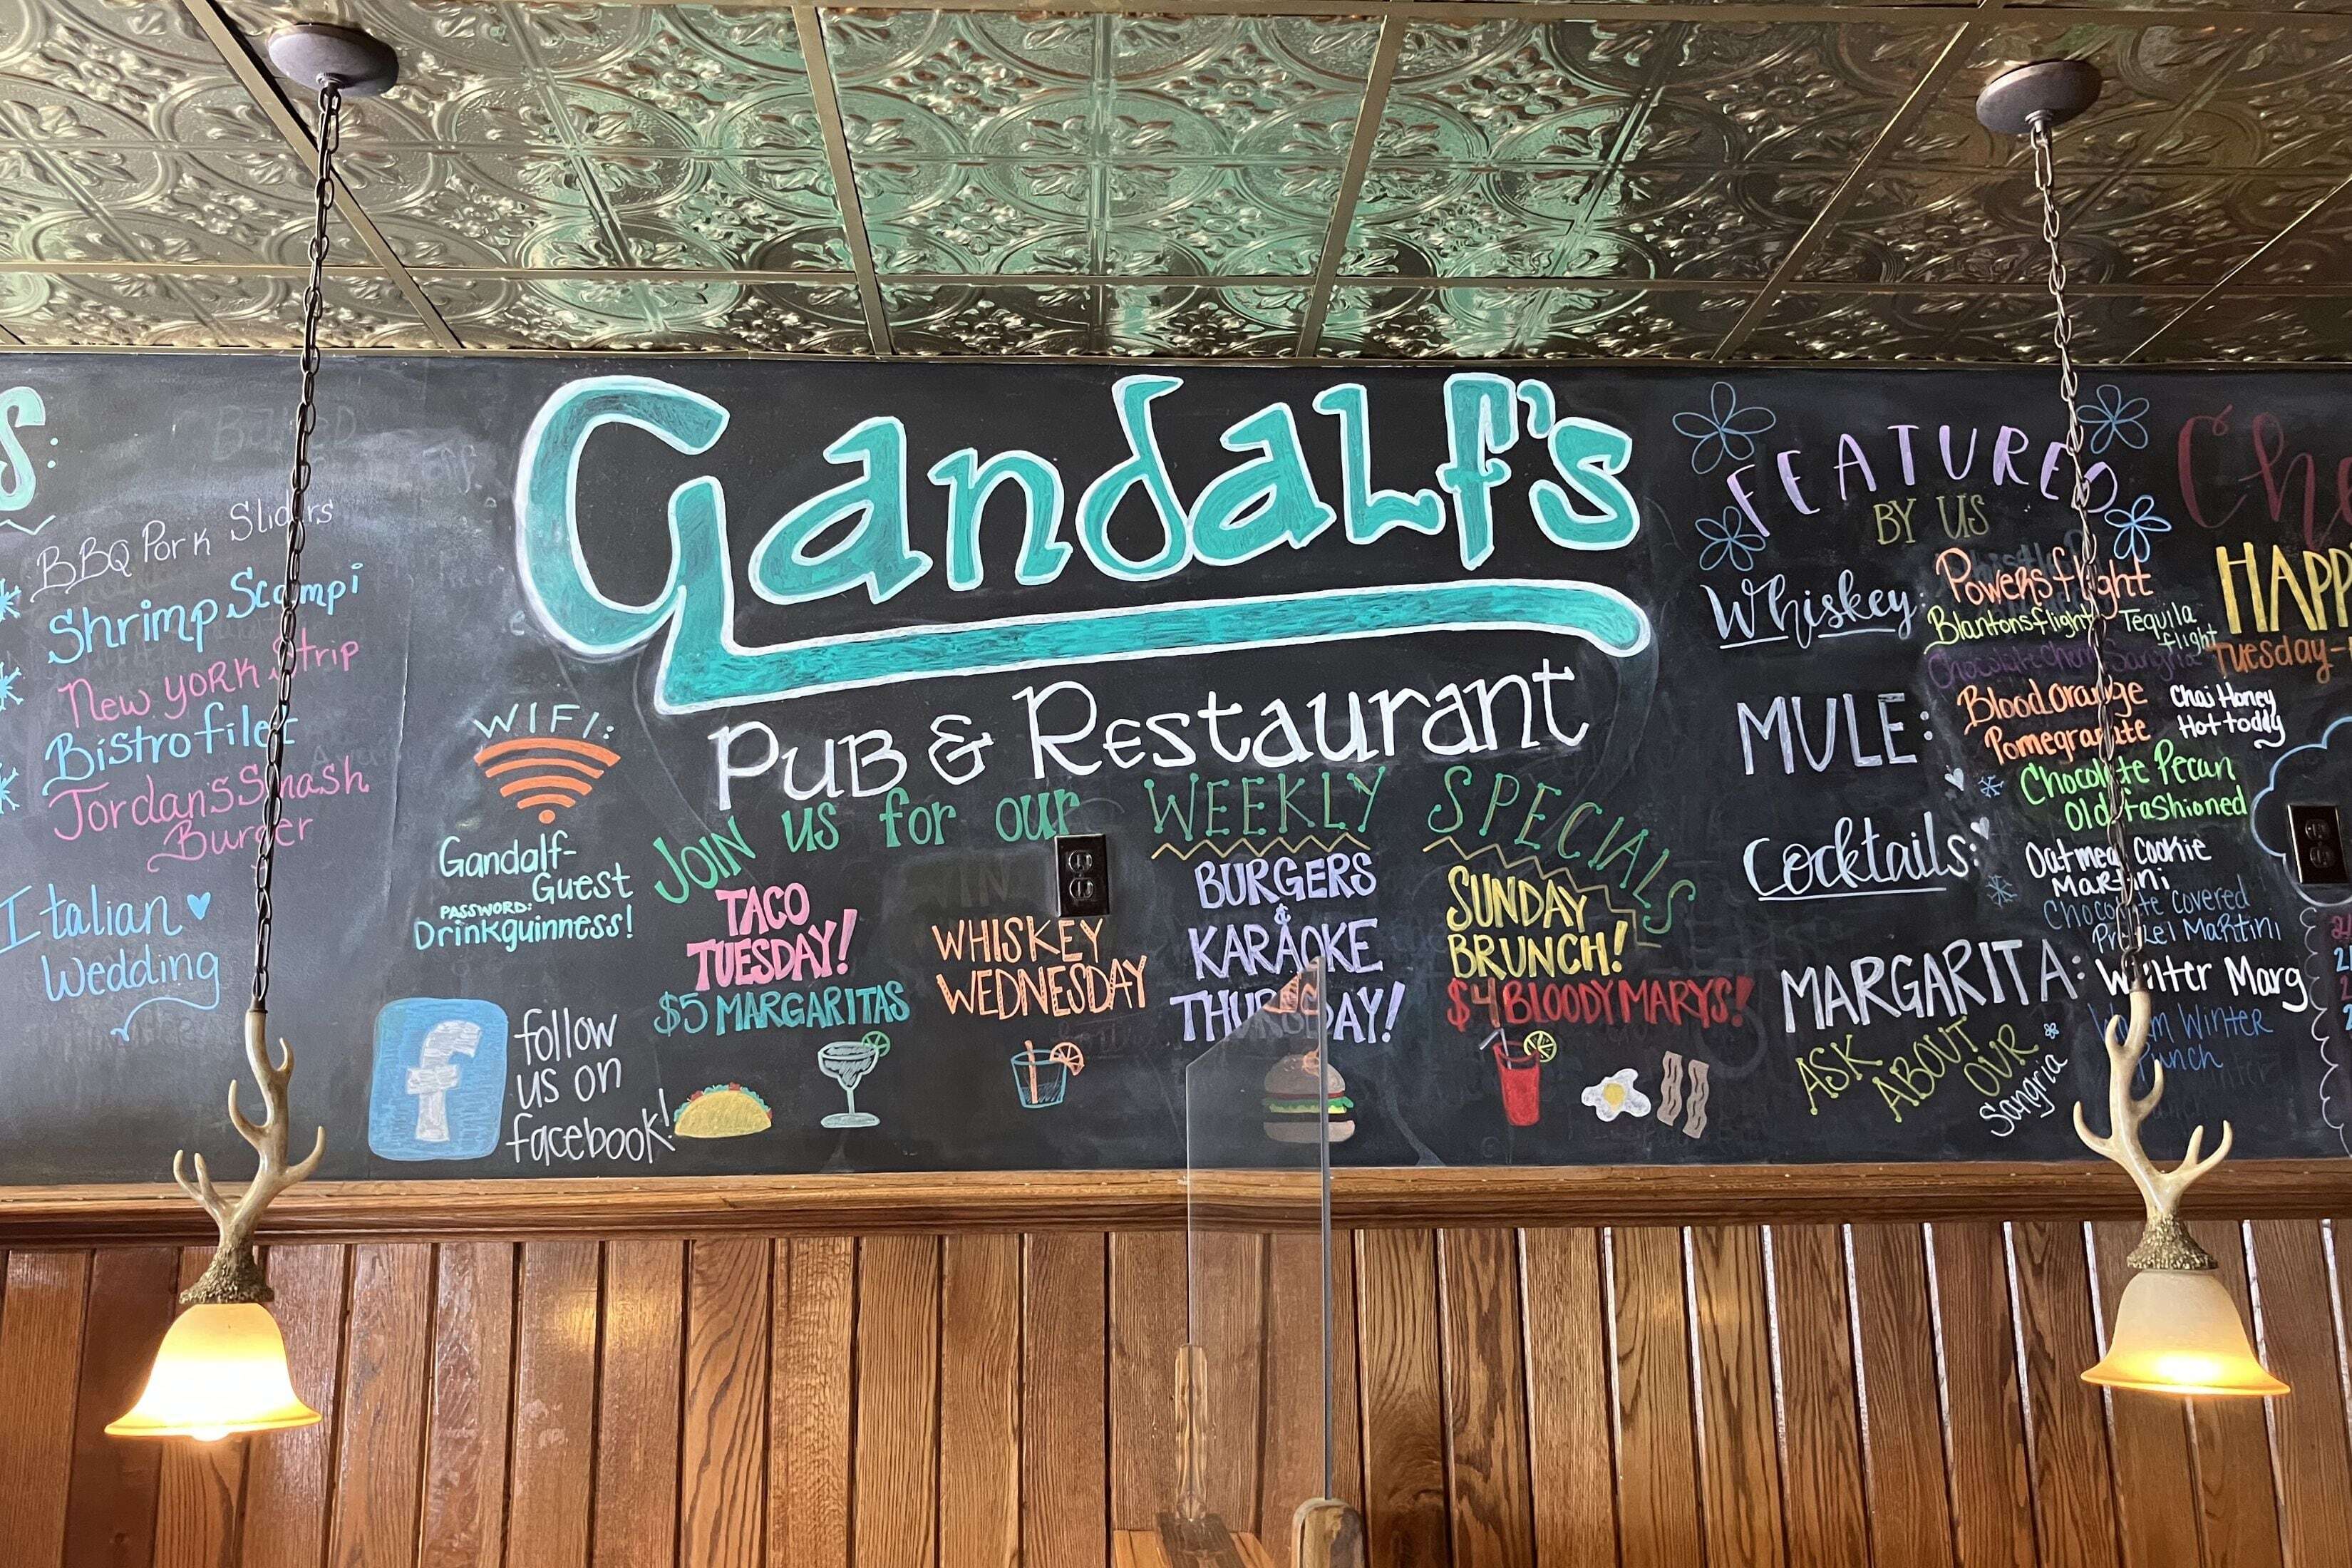 S:
BBQ Pork Sliders
Shrimp Scampi
New York Strip
Bistro filet
Jordan's Smash
Burger
Italian
Wedding
Gandalf's
Pub & Restaurant
WIFI:
Gandalf-
Guest
PASSWORD:
Drinkguinness!
follow
us on
facebook!
JOIN us for our WEEKLY SPECIALS
TACO
TUESDAY!
$5 MARGARITAS
WHISKEY
WEDNESDAY
BURGERS
&
KARAOKE
THURSDAY!
SUNDAY
BRUNCH!
$4 BLOODY MARYS!
FEATURED
BY US
Whiskey:
Powers flight
Blantons flight
Tequila
flight
Chocolate Cherry Sangria
MULE:
Blood Orange
Pomegranate
Chai Honey
Hot toddy
Cocktails:
Chocolate Pecan
Old fashioned
Oatmeal Cookie
Martini
Chocolate covered
Pretzel Martini
MARGARITA:
Winter Marg
Warm Winter
Punch
ASK
ABOUT
OUR
Sangria
Ch
HAPP
Tuesday-